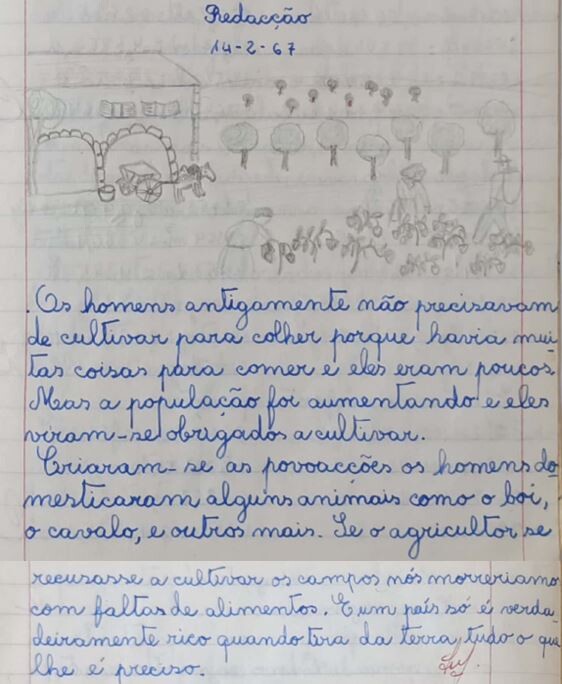 Redacção
14-2-67
Os homens antigamente não precisavam
de cultivar para colher porque havia mui
tas coisas para comer e eles eram poucos.
Mas a população foi aumentando e eles
viram-se obrigados a cultivar.
Criaram-se as povoacções os homens do
mesticaram alguns animais como o boi,
o cavalo, e outros mais. Se o agricultor se
recusasse a cultivar os campos nós morreriamo
com faltas de alimentos. E um país só é verda
deiramente rico quando tira da terra, tudo o que
lhe é preciso.